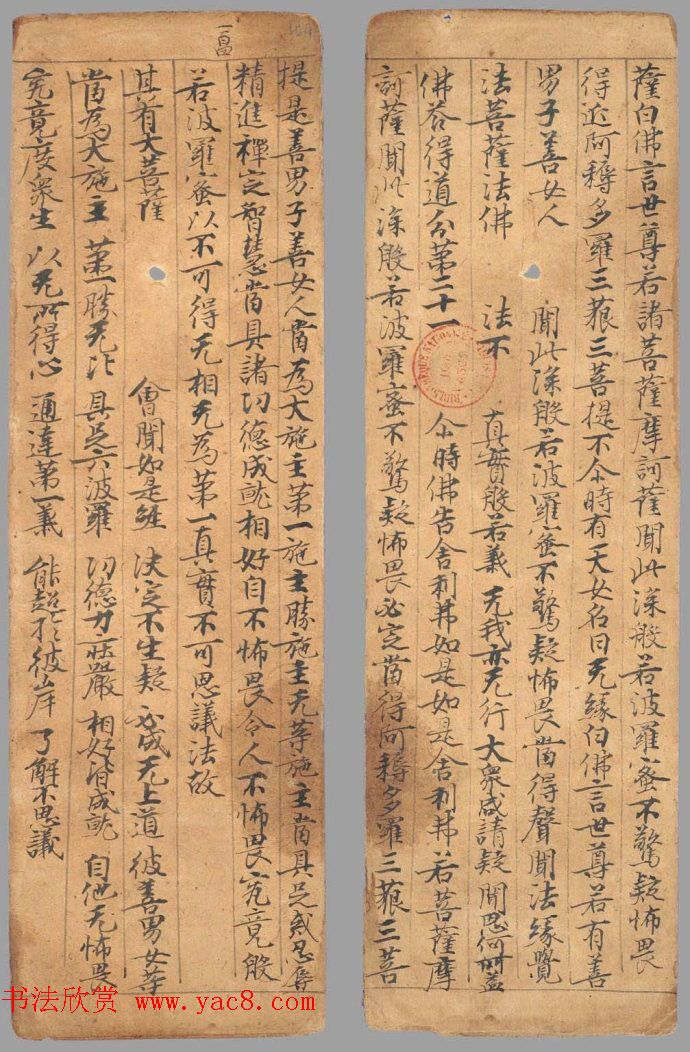 薩白佛言世尊若諸菩薩摩訶薩聞此深般若波羅蜜不驚疑怖畏
得近阿耨多羅三藐三菩提不尒時有天女名曰无緣白佛言世尊若有善
男子善女人 聞此深般若波羅蜜不驚疑怖畏當得聲聞法緣覺
法菩薩法佛 法不 真實般若義 无我亦无行 大衆咸請疑 聞恩何所蓋
佛荅得道分第二十一 尒時佛告舍利弗如是如是舍利弗若菩薩摩
訶薩聞此深般若波羅蜜不驚疑怖畏必定當得阿耨多羅三藐三菩
提是善男子善女人當為大施主第一施主勝施主无等施主當具足戒忍辱
精進禪定智慧當具諸功德成就相好自不怖畏令人不怖畏究竟般
若波羅蜜以不可得无相无為第一真實不可思議法故
其有大菩薩 會聞如是經 決定不生疑 必成无上道 彼善男女等
當為大施主 第一勝无比 具足六波羅 功德力庄嚴 相好皆成就 自他无怖畏
究竟度衆生 以无所得心 通達第一義 能超於彼岸 了解不思議
书法欣赏 www.yac8.com